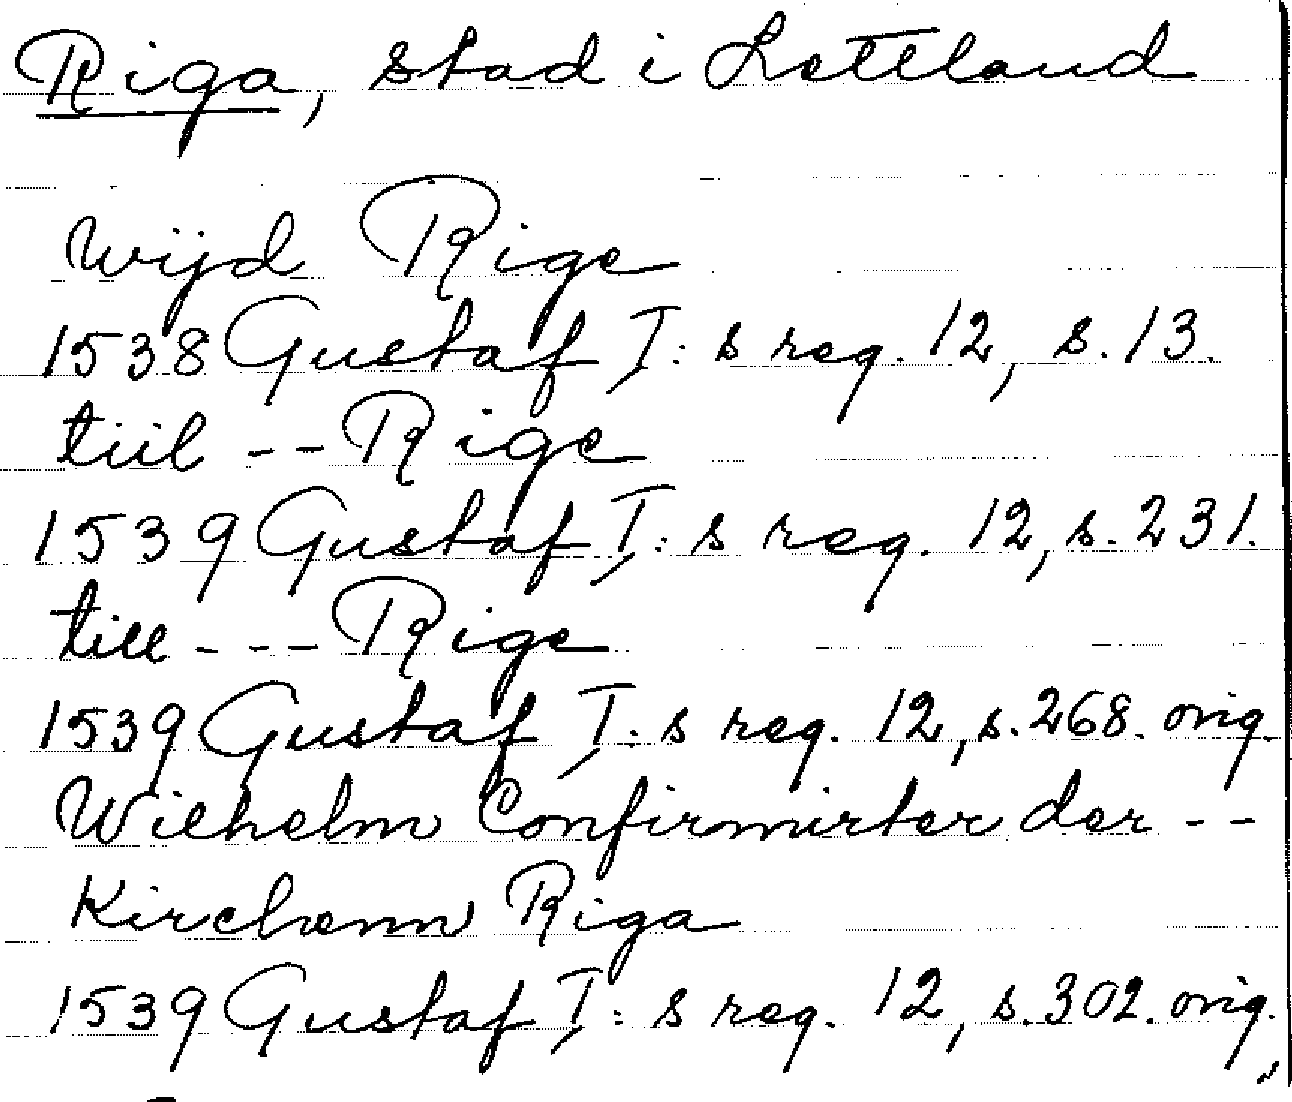 Riga, stad i Lettland
Wijd Rige
1538 Gustaf I:s reg. 12, s. 13.
tiil -- Rige
1539 Gustaf I:s reg. 12, s. 231.
till --- Rige
1539 Gustaf I:s reg. 12, s. 268. orig.
Wilhelm Confirmirter der --
Kirchenn Riga
1539 Gustaf I:s reg. 12, s. 302. orig.